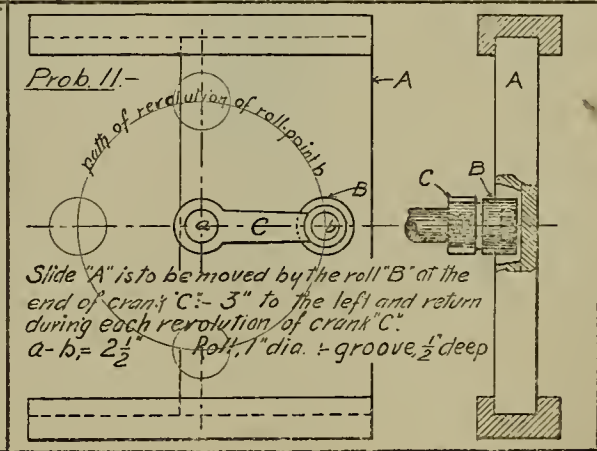 Prob. 11.-
A
A
path of revolution of roll-point b
B
C
B
a
C
b
Slide "A" is to be moved by the roll "B" at the
end of crank "C":- 3" to the left and return
during each revolution of crank "C".
a-b,= 2½" Roll, 1" dia. :- groove, ½" deep